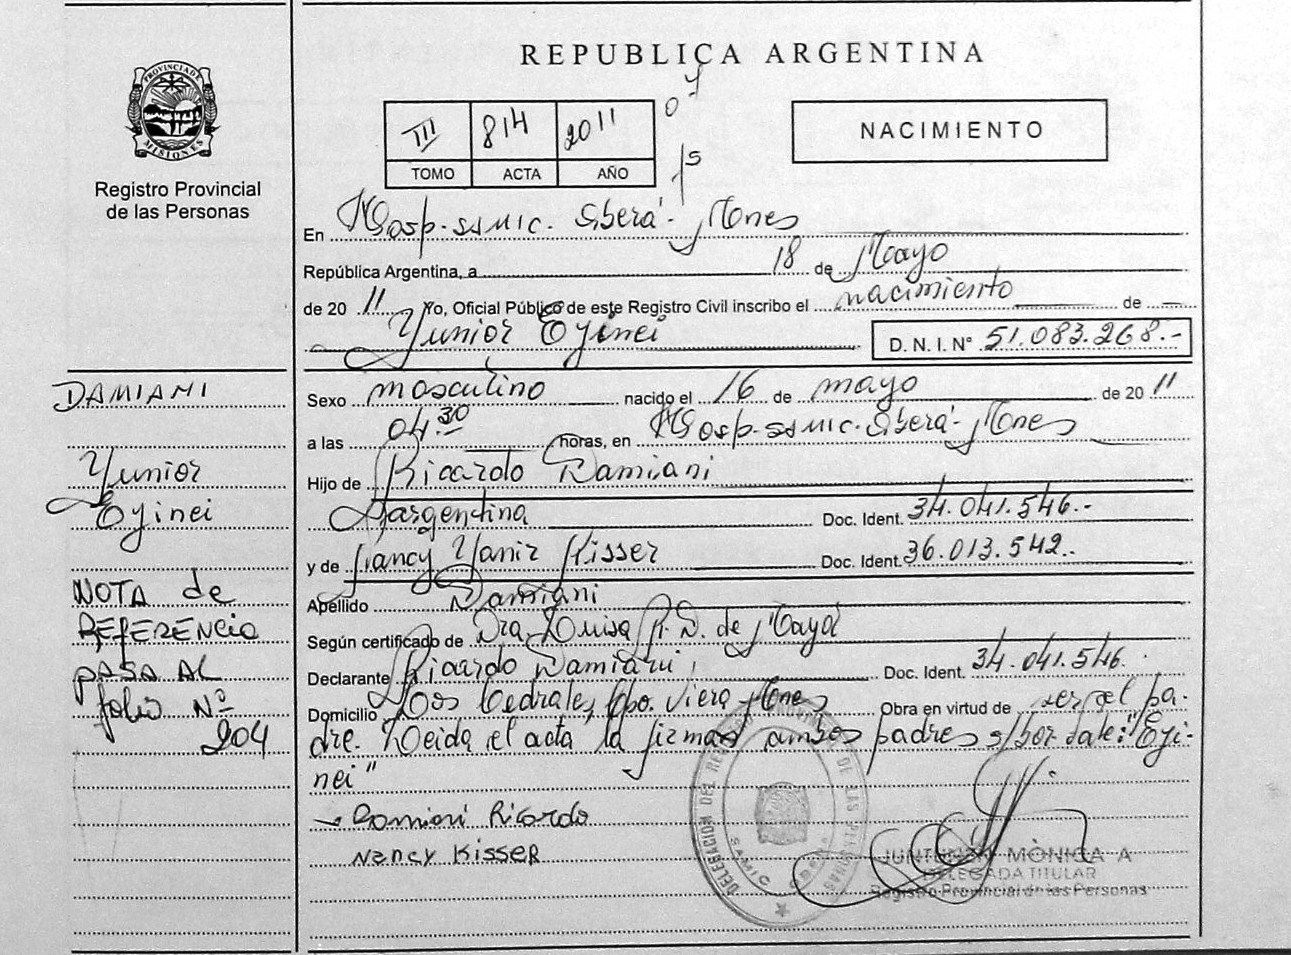 PROVINCIA DE
MISIONES
Registro Provincial
de las Personas
REPUBLICA ARGENTINA
III 814 2011
TOMO ACTA AÑO
NACIMIENTO
En Hosp. SAMIC. Oberá - Mnes
República Argentina, a 18 de Mayo
de 20 11 Yo, Oficial Público de este Registro Civil inscribo el nacimiento de
Yunior Eyinei D. N. I. Nº 51.083.268.-
Sexo masculino nacido el 16 de mayo de 20 11
a las 04.30 horas, en Hosp. SAMIC. Oberá - Mnes
Hijo de Ricardo Damiani
Argentina Doc. Ident. 34.041.546.-
y de Nancy Yanir Kisser Doc. Ident. 36.013.542.
Apellido Damiani
Según certificado de Dra. Luisa R. D. de Maya
Declarante Ricardo Damiani Doc. Ident. 34.041.546.
Domicilio Los Cedrales, Cpo. Viera Mnes Obra en virtud de ser el pa-
dre. Leida el acta la firman ambos padres s/bor. vale: "Eyi-
nei"
Damiani Ricardo
Nancy Kisser
DELEGACION DEL REGISTRO PROVINCIAL DE LAS PERSONAS
SAMIC OBERA
MÒNICA A
DELEGADA TITULAR
Registro Provincial de las Personas
DAMIANI
Yunior
Eyinei
NOTA de
REFERENCIA
PASA AL
folio Nº
204